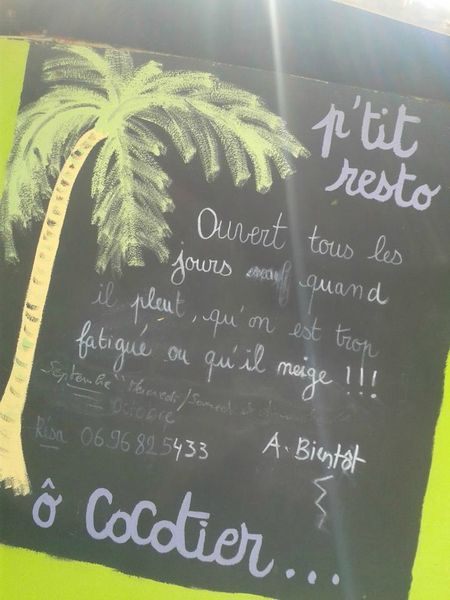 p'tit
resto
Ouvert tous les
jours sauf quand
il pleut, qu'on est trop
fatigué ou qu'il neige !!!
Septembre " Mercredi / Samedi
Octobre
Résa 06 96 82 5433
A. Bientôt
ô CoCotier...